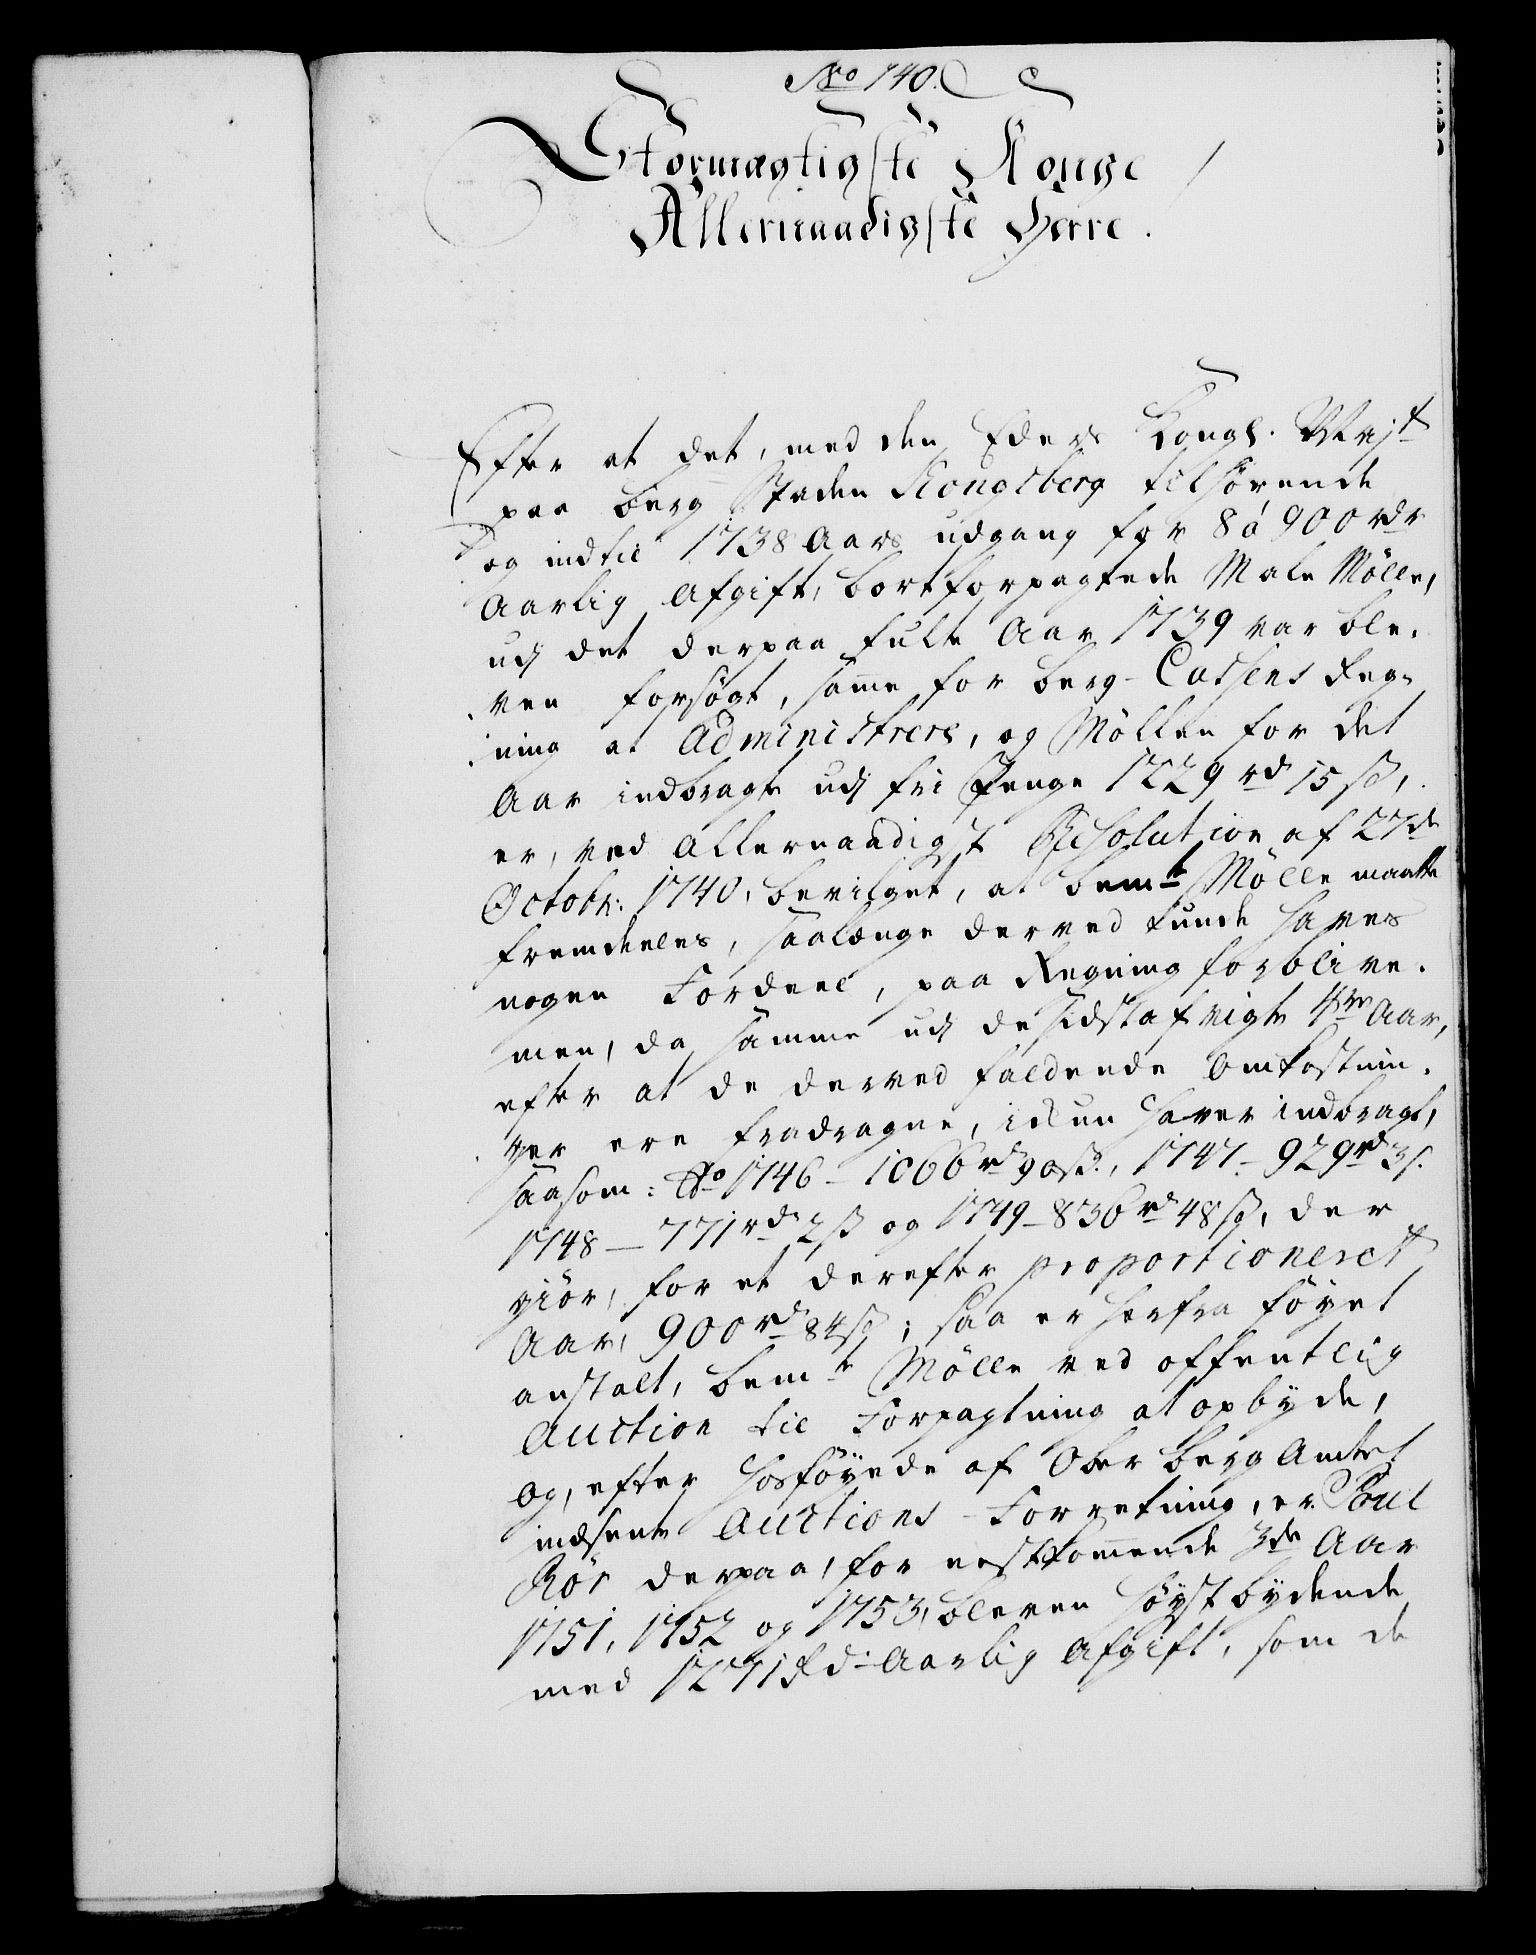 No 140.
Stormægtigste Konge
Allernaadigste Herre.
Efter at det, med den Eders Kongl. Majt
paa Berg Staden Kongsberg tilhørende
og indtil 1738 Aars udgang for 8 á 900 rdr
Aarlig Afgift, bortforpagtede Male Mölle,
udj det derpaa fulte Aar 1739 var ble-
ven forsøgt, samme for Berg-Cassens Reg-
ning at Administrere, og Möllen for det
Aar indbragte udj fri Penge 1229 rd 15 ß,
er, ved Allernaadigst Resolution af 27de
Octobr: 1740, bevilget, at bemte Mölle maatte
fremdeeles, saalænge derved kunde haves
nogen Fordeel, paa Regning forblive.
men, da samme udj de sidst afvigte 4re Aar,
efter at de derved faldende Omkostnin-
ger ere fradragne, ickun haver indbragt,
saasom: Ao 1746 - 1066 rd 90 ß., 1747 - 929 rd 3 ß.
1748 - 771 rd 2 ß og 1749 - 836 rd 48 ß, der
giör, for et derefter proportioneret
Aar, 900 rd 84 ß; saa er herfra föyet
anstalt, bemte Mölle ved offentlig
Auction til Forpagtning at opbyde,
og, efter hosföyede af Ober Berg Amtet
indsente Auctions-Forretning, er Poul
Rör derpaa, for nestkommende 3de Aar
1751, 1752 og 1753, bleven höystbydende
med 1271 Rd Aarlig Afgift, som de